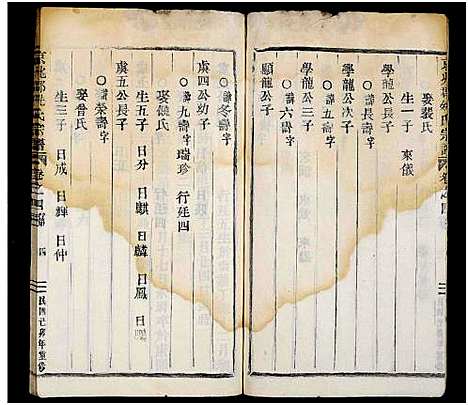 娶裴氏
生一子 來儀
學龍公長子
○諱長壽字
學龍公次子
○諱五壽字
學龍公三子
○諱六壽字
顯龍公子
○諱冬壽字
虞四公幼子
○諱九壽字瑞珍 行廷四
娶饒氏
生五子 日分 日麒 日麟 日鳳 日
虞五公長子
○諱榮壽字
娶曾氏
生三子 日成 日輝 日仲
京兆郡
氏宗譜
卷之四
四
民四乙卯年重修